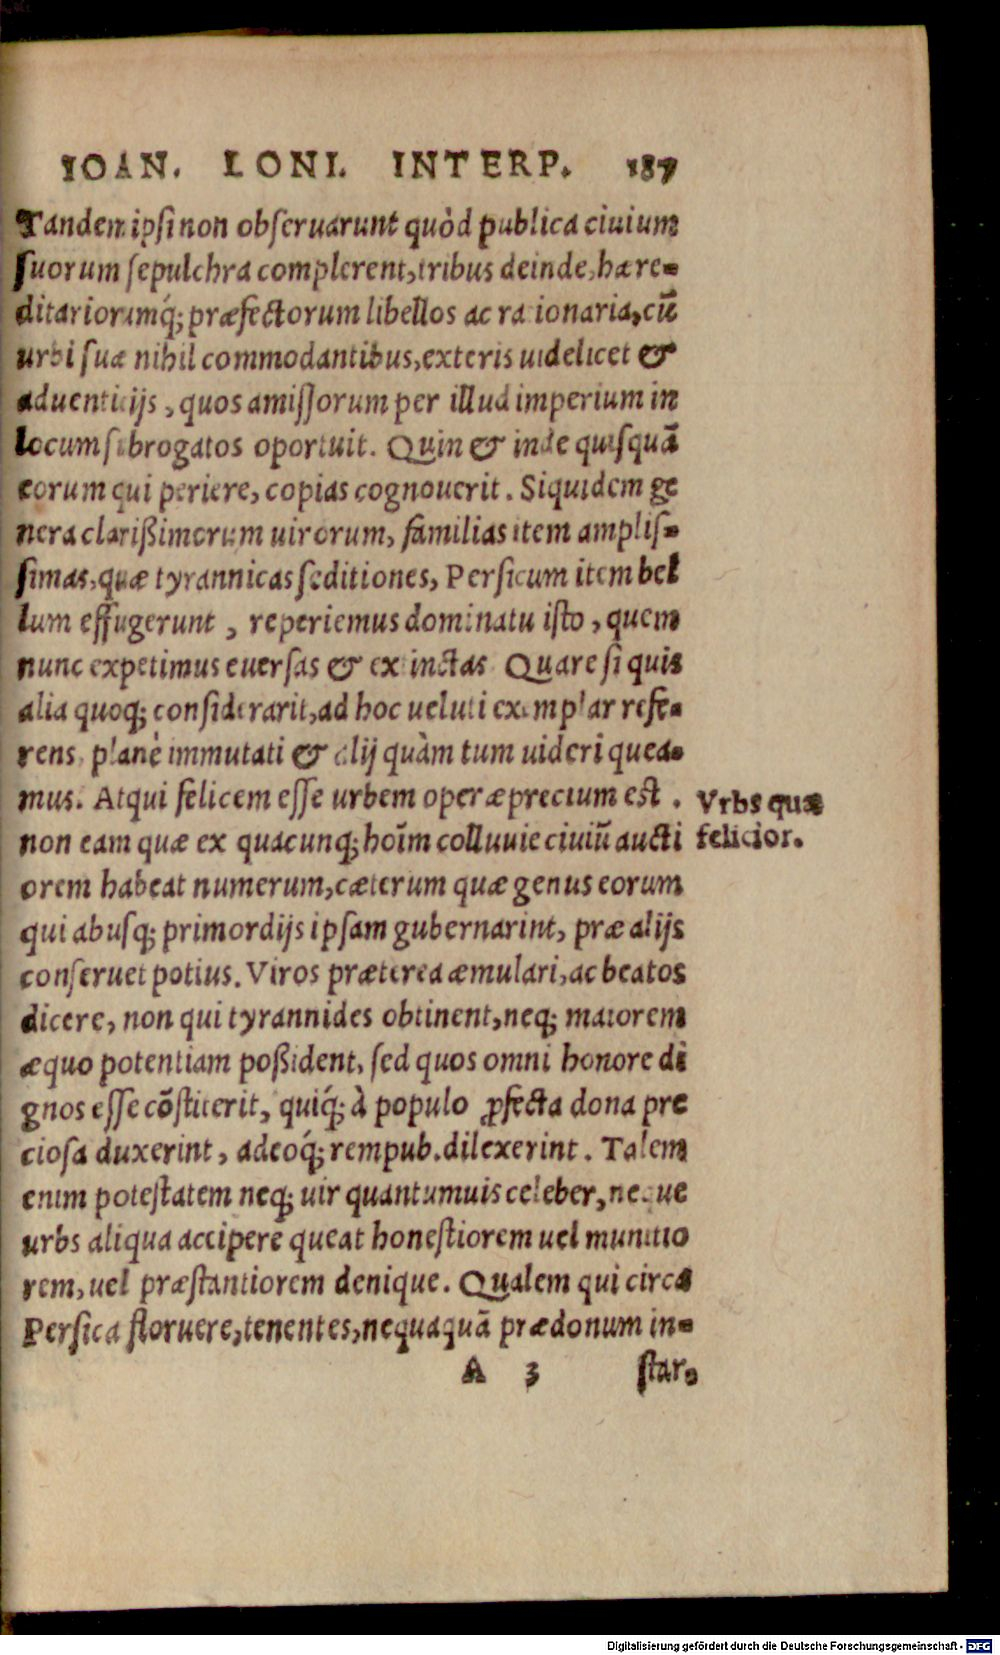 IOAN. LONI. INTERP. 187
Tandem ipsi non obseruarunt quòd publica ciuium
suorum sepulchra complerent, tribus deinde, hære-
ditariorumq́; præfectorum libellos ac rationaria, cũ
urbi suæ nihil commodantibus, exteris uidelicet &
aduenticijs, quos amissorum per illud imperium in
locum subrogatos oportuit. Quin & inde quisquã
eorum qui periere, copias cognouerit. Siquidem ge
nera clarißimorum uirorum, familias item amplis-
simas, quæ tyrannicas seditiones, Persicum item bel
lum effugerunt, reperiemus dominatu isto, quem
nunc expetimus euersas & extinctas Quare si quis
alia quoq; considerarit, ad hoc ueluti exemplar refe-
rens, planè immutati & alij quàm tum uideri quea-
mus. Atqui felicem esse urbem operæprecium est.
Vrbs quæ
non eam quæ ex quacunq; hoĩm colluuie ciuiũ aucti
felicior.
orem habeat numerum, cæterum quæ genus eorum
qui abusq; primordijs ipsam gubernarint, præ alijs
conseruet potius. Viros præterea æmulari, ac beatos
dicere, non qui tyrannides obtinent, neq; maiorem
æquo potentiam poßident, sed quos omni honore di
gnos esse cõstiterit, quiq́; à populo ꝓfecta dona pre
ciosa duxerint, adeoq́; rempub. dilexerint. Talem
enim potestatem neq; uir quantumuis celeber, neque
urbs aliqua accipere queat honestiorem uel munitio
rem, uel præstantiorem denique. Qualem qui circa
Persica floruere, tenentes, nequaquã prædonum in-
A 3 star,
Digitalisierung gefördert durch die Deutsche Forschungsgemeinschaft - DFG